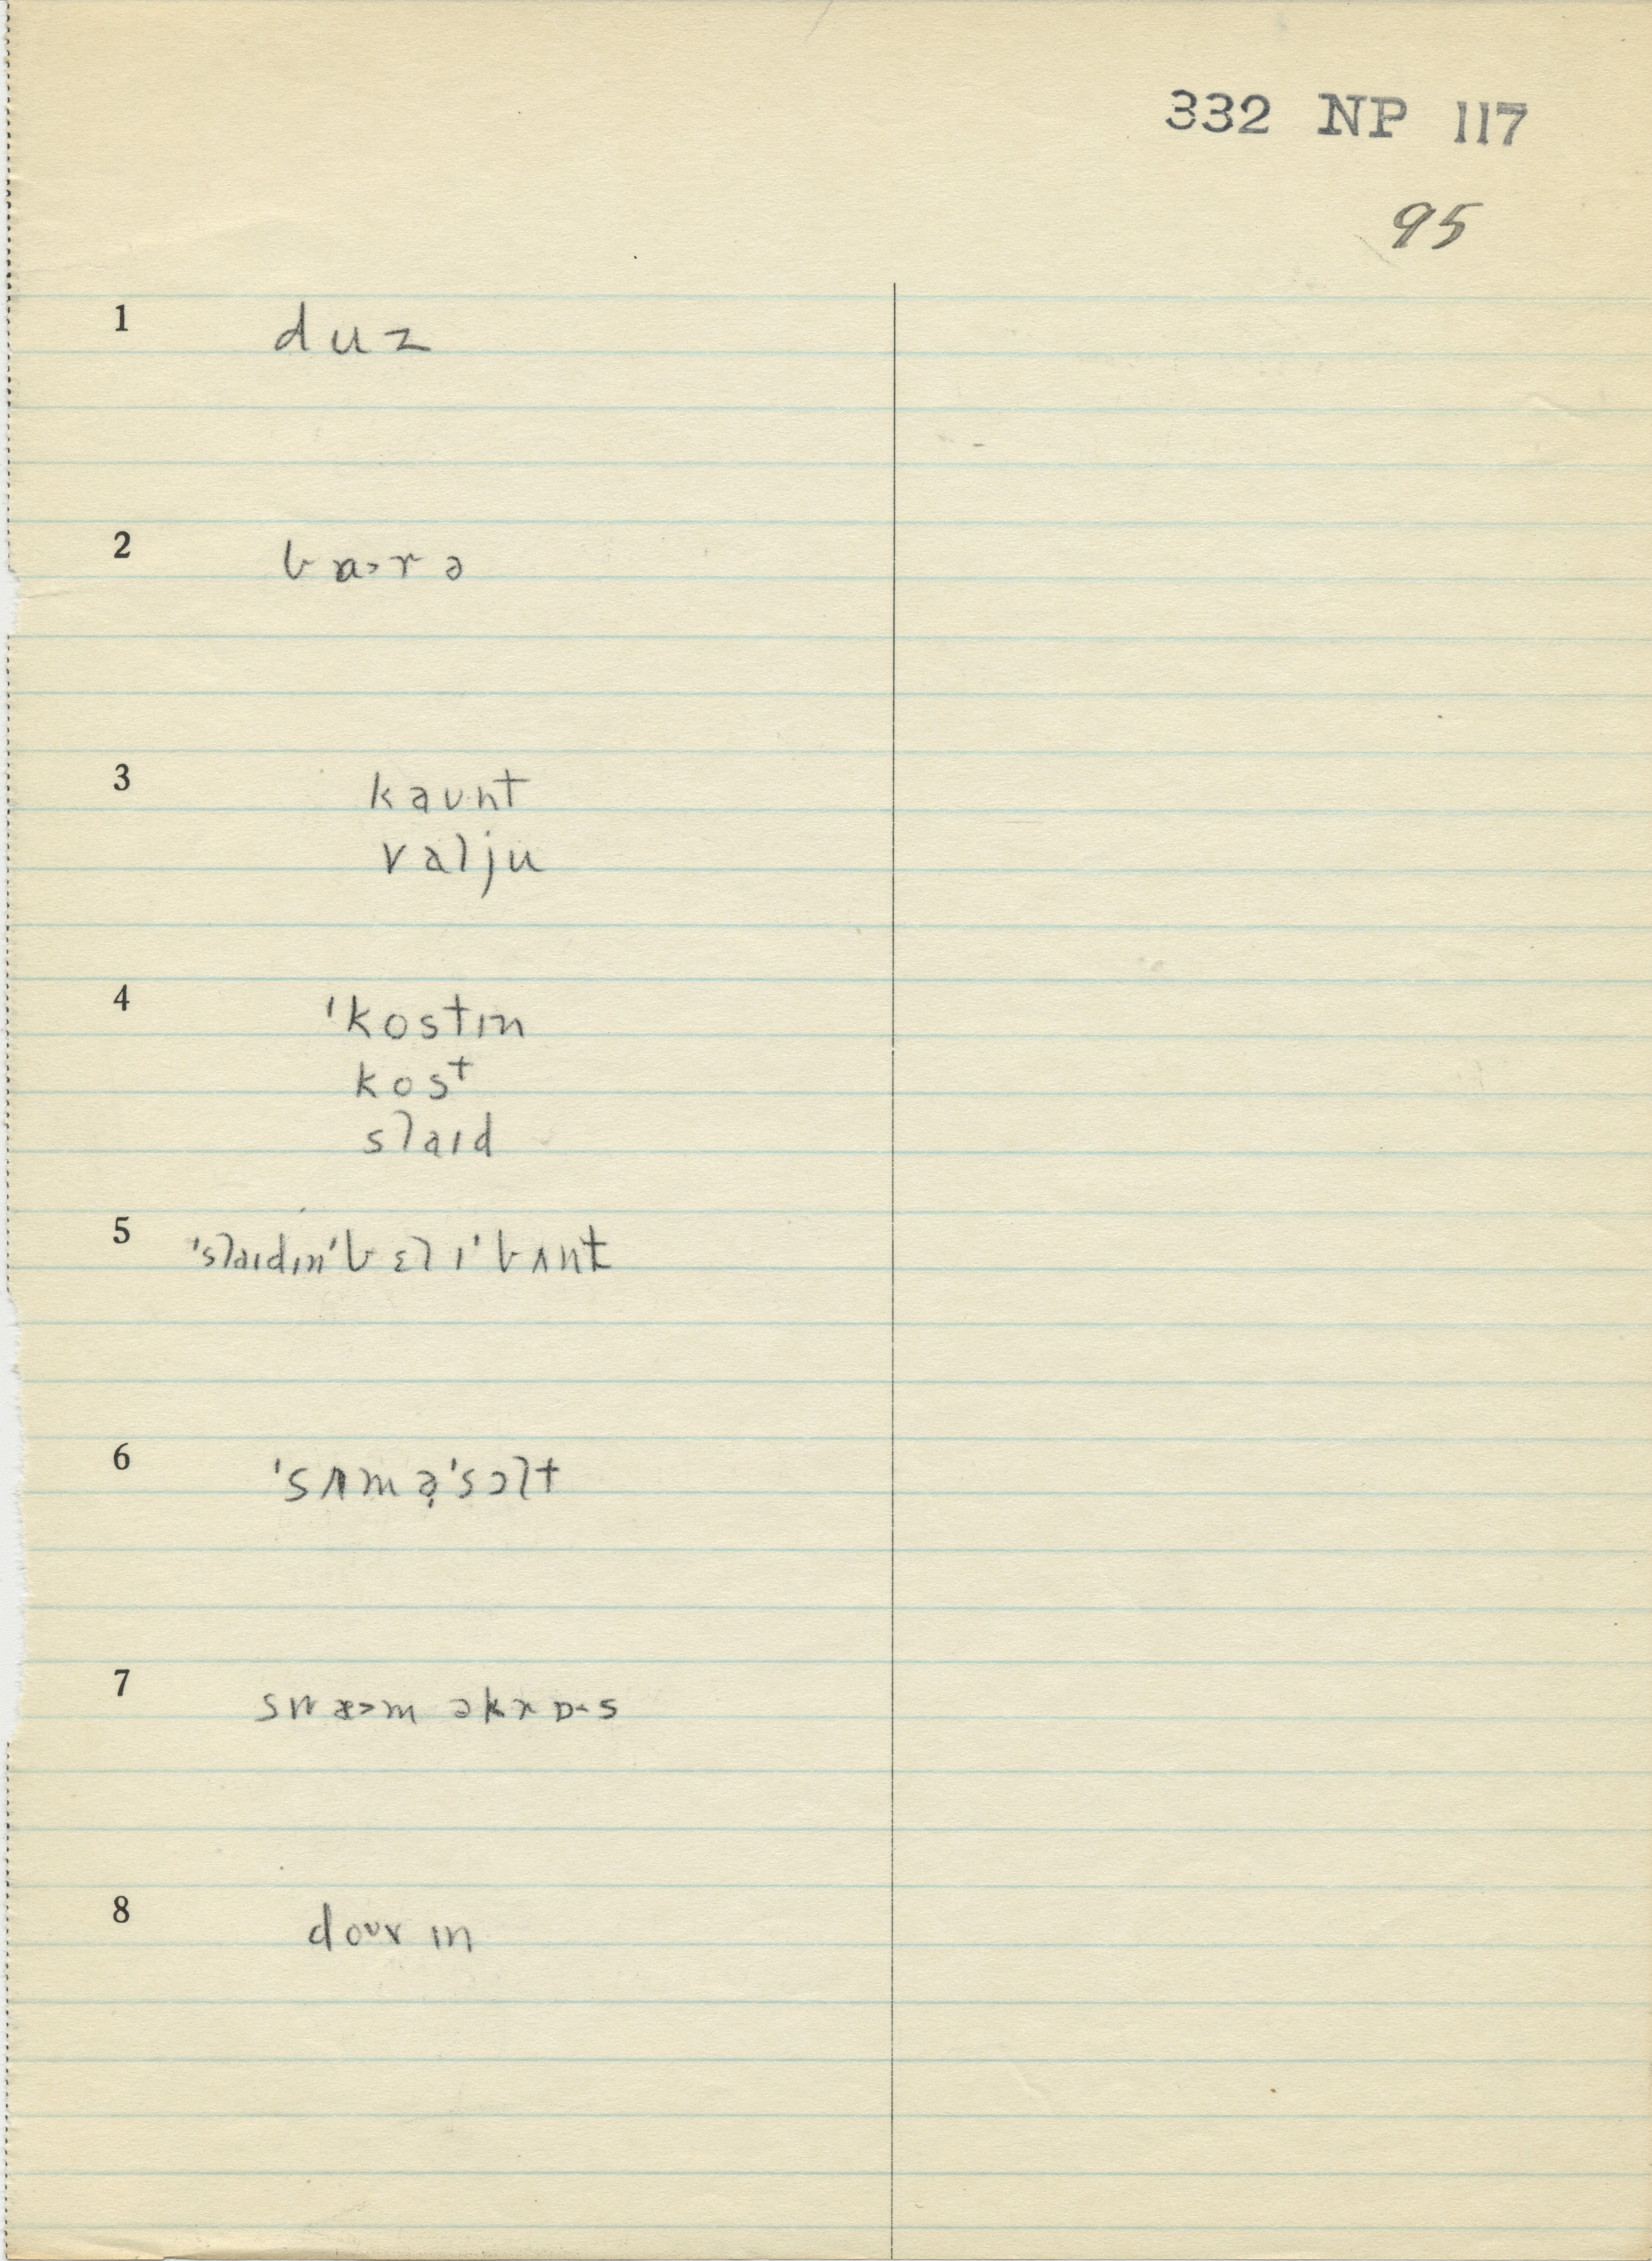 332 NP 117
95
1 duz
2 bɑ>rə
3 kaunt
valju
4 'kostɪn
kost
slaɪd
5 'slaɪdɪn'bɛlɪ'bʌnt
6 'sʌmə̣'sɔlt
7 swæ>m əkrɒ<s
8 douv ɪn